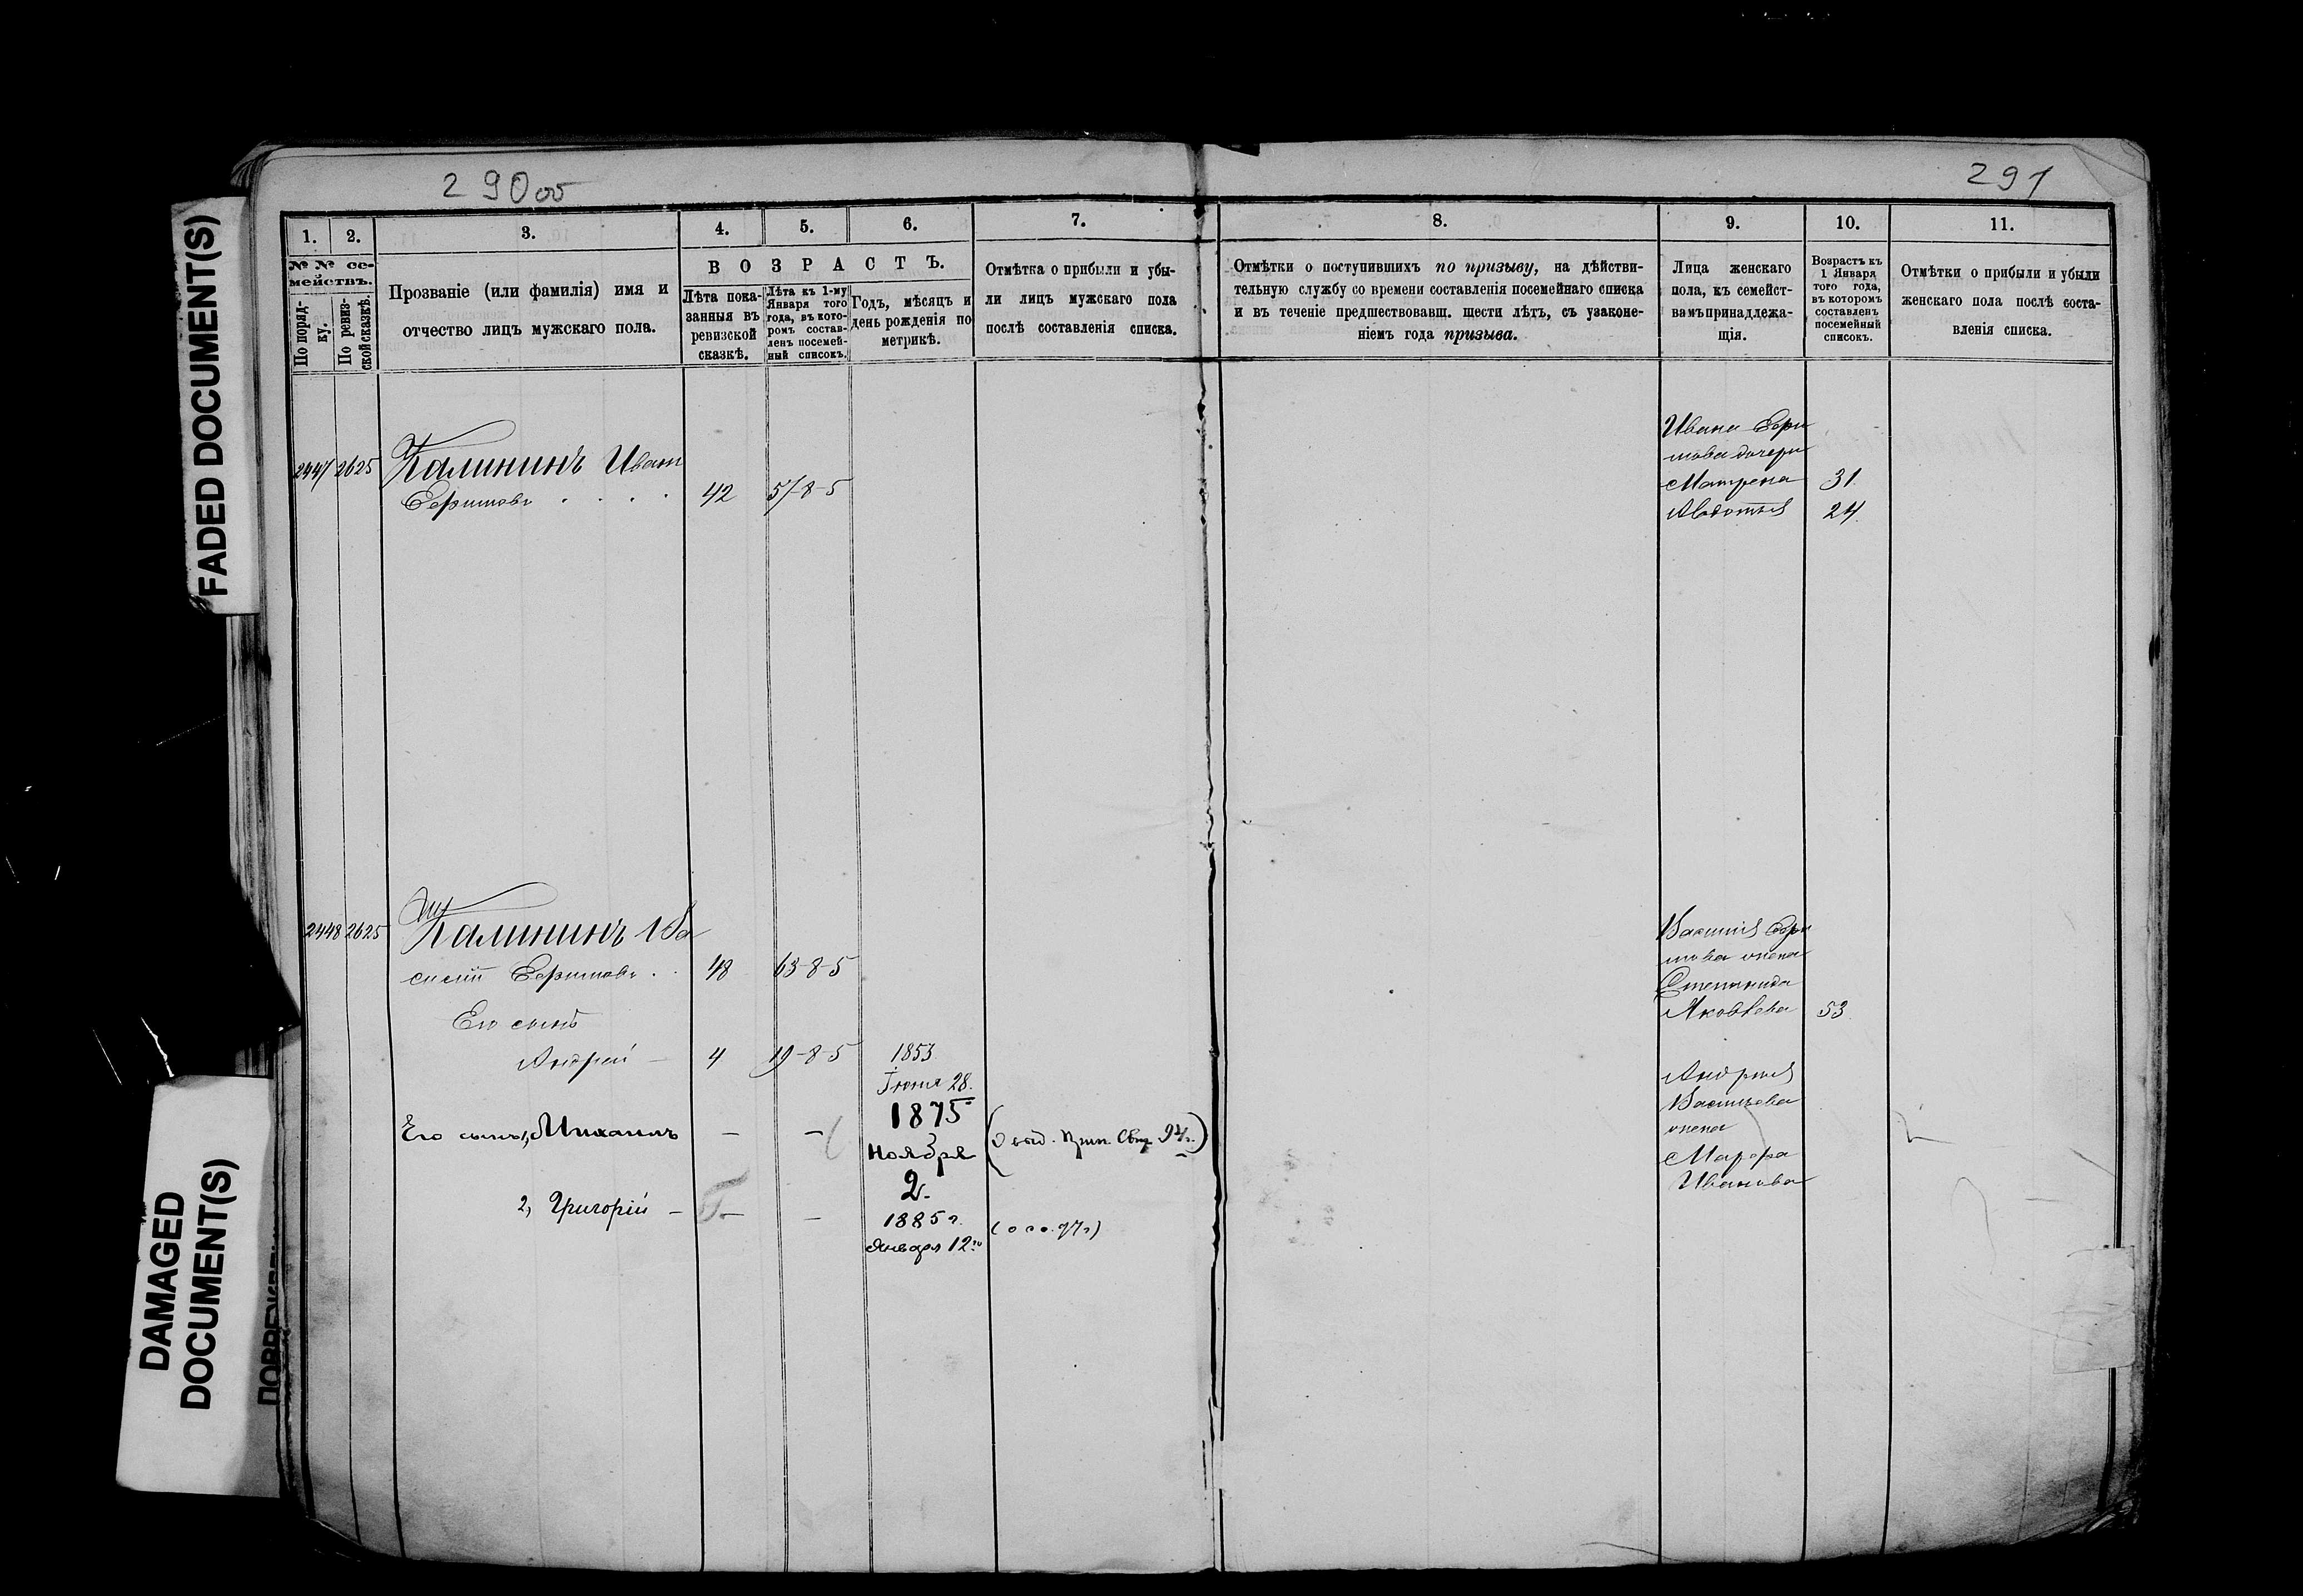 290об
291
FADED DOCUMENT(S)
DAMAGED
DOCUMENT(S)
1.
2.
3.
4.
5.
6.
7.
8.
9.
10.
11.
№ № се-
мействъ.
По поряд-
ку.
По ревиз-
ской сказкѣ.
Прозваніе (или фамилія) имя и
отчество лицъ мужскаго пола.
ВОЗРАСТЪ.
Лѣта пока-
занныя въ
ревизской
сказкѣ.
Лѣта къ 1-му
Января того
года, въ кото-
ромъ состав-
ленъ посемей-
ный списокъ.
Годъ, мѣсяцъ и
день рожденія по
метрикѣ.
Отмѣтка о прибыли и убы-
ли лицъ мужскаго пола
послѣ составленія списка.
Отмѣтки о поступившихъ по призыву, на дѣйстви-
тельную службу со времени составленія посемейнаго списка
и въ теченіе предшествовавш. шести лѣтъ, съ узаконе-
ніемъ года призыва.
Лица женскаго
пола, къ семейст-
вамъ принадлежа-
щія.
Возрастъ къ
1 Января
того года,
въ которомъ
составленъ
посемейный
списокъ.
Отмѣтки о прибыли и убыли
женскаго пола послѣ соста-
вленія списка.
2447 2625 Калининъ Иванъ
Ефимовъ 42 57-8-5
Ивана Ефи
мова дочери
Матрена 31.
Авдотья 24.
2448 2625 Калининъ Ва
силій Ефимовъ 48 63-8-5
Его сынъ
Андрей 4 19-8-5 1853
Іюня 28.
Его сынъ 1, Михаилъ — — 1875
Ноября
2.
94 г.)
2, Григорій — — — 1885 г.
Января 12го
97 г)
Василія Ефи
мова жена
Степанида
Яковлева 53.
Андрея
Васильева
жена
Марфа
Иванова